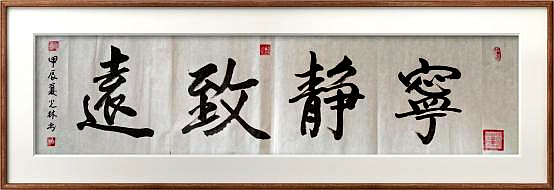 寧靜致遠
甲辰夏光林书